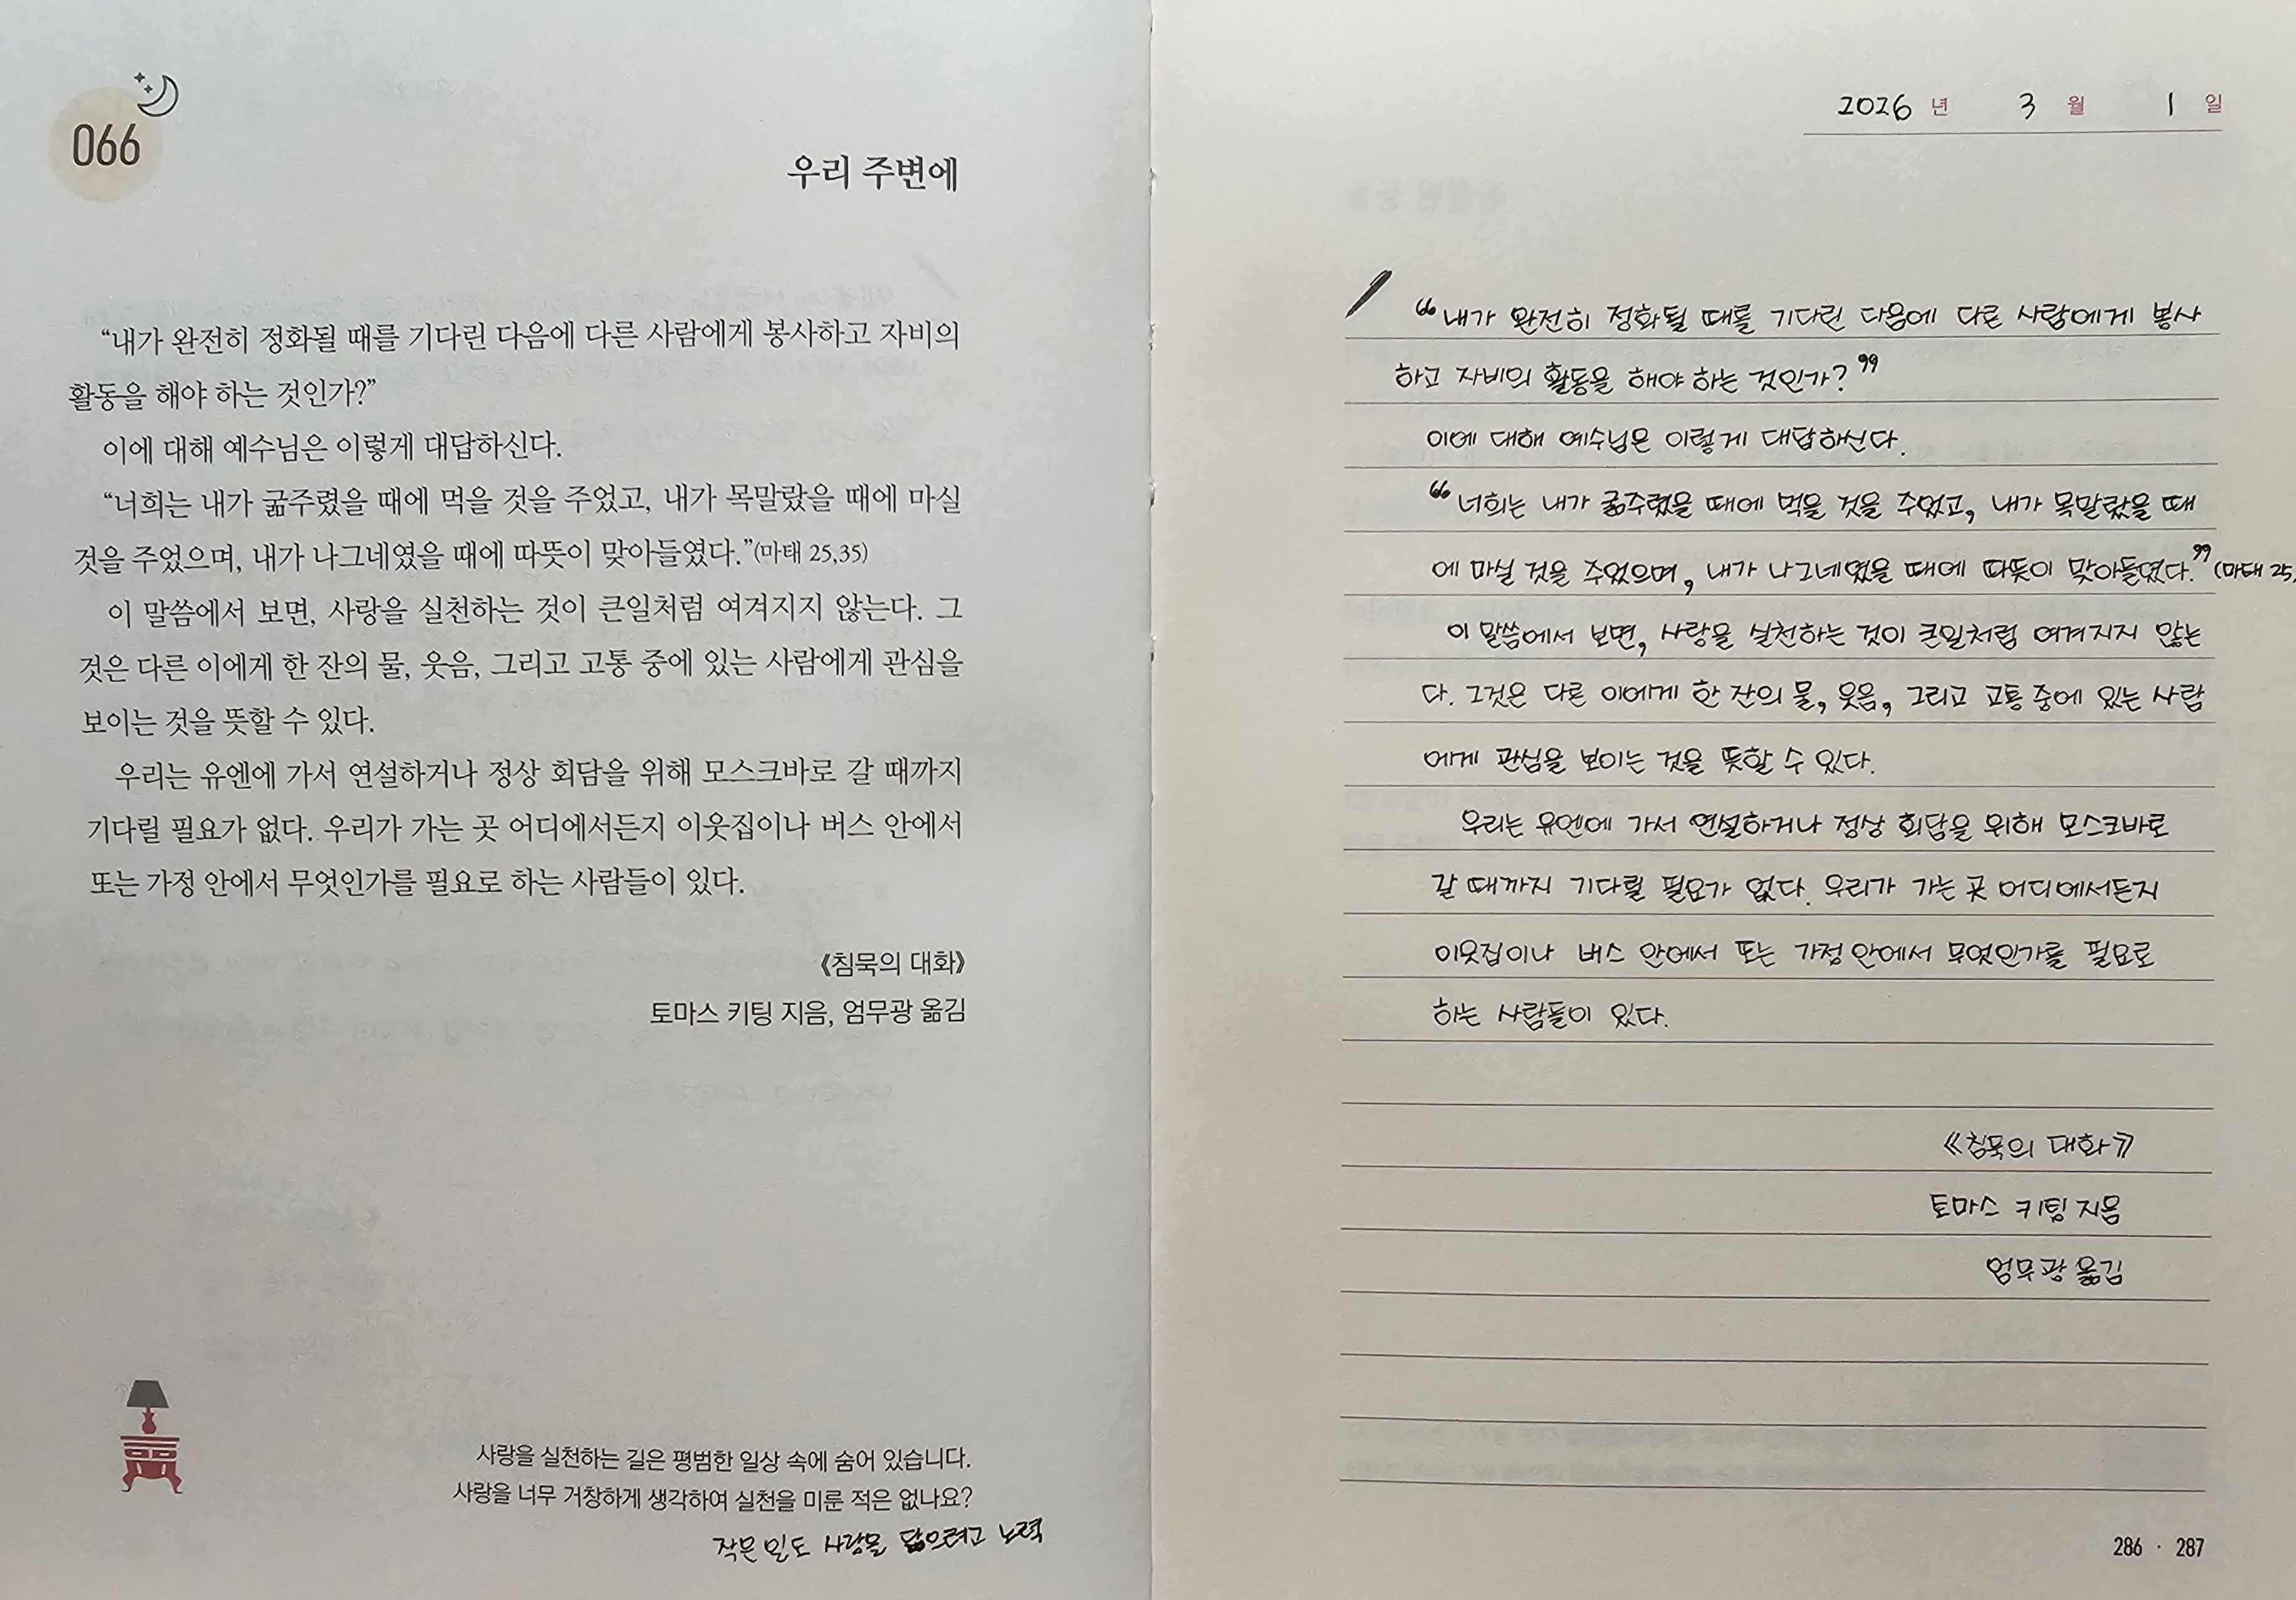 066
우리 주변에
“내가 완전히 정화될 때를 기다린 다음에 다른 사람에게 봉사하고 자비의
활동을 해야 하는 것인가?”
이에 대해 예수님은 이렇게 대답하신다.
“너희는 내가 굶주렸을 때에 먹을 것을 주었고, 내가 목말랐을 때에 마실
것을 주었으며, 내가 나그네였을 때에 따뜻이 맞아들였다.”(마태 25,35)
이 말씀에서 보면, 사랑을 실천하는 것이 큰일처럼 여겨지지 않는다. 그
것은 다른 이에게 한 잔의 물, 웃음, 그리고 고통 중에 있는 사람에게 관심을
보이는 것을 뜻할 수 있다.
우리는 유엔에 가서 연설하거나 정상 회담을 위해 모스크바로 갈 때까지
기다릴 필요가 없다. 우리가 가는 곳 어디에서든지 이웃집이나 버스 안에서
또는 가정 안에서 무엇인가를 필요로 하는 사람들이 있다.
《침묵의 대화》
토마스 키팅 지음, 엄무광 옮김
사랑을 실천하는 길은 평범한 일상 속에 숨어 있습니다.
사랑을 너무 거창하게 생각하여 실천을 미룬 적은 없나요?
작은 일도 사랑을 담으려고 노력
2026 년 3 월 1 일
“내가 완전히 정화될 때를 기다린 다음에 다른 사람에게 봉사
하고 자비의 활동을 해야 하는 것인가?”
이에 대해 예수님은 이렇게 대답하신다.
“너희는 내가 굶주렸을 때에 먹을 것을 주었고, 내가 목말랐을 때
에 마실 것을 주었으며, 내가 나그네였을 때에 따뜻이 맞아들였다.” (마태 25,
이 말씀에서 보면, 사랑을 실천하는 것이 큰일처럼 여겨지지 않는
다. 그것은 다른 이에게 한 잔의 물, 웃음, 그리고 고통 중에 있는 사람
에게 관심을 보이는 것을 뜻할 수 있다.
우리는 유엔에 가서 연설하거나 정상 회담을 위해 모스크바로
갈 때까지 기다릴 필요가 없다. 우리가 가는 곳 어디에서든지
이웃집이나 버스 안에서 또는 가정 안에서 무엇인가를 필요로
하는 사람들이 있다.
《침묵의 대화》
토마스 키팅 지음
엄무광 옮김
286 · 287